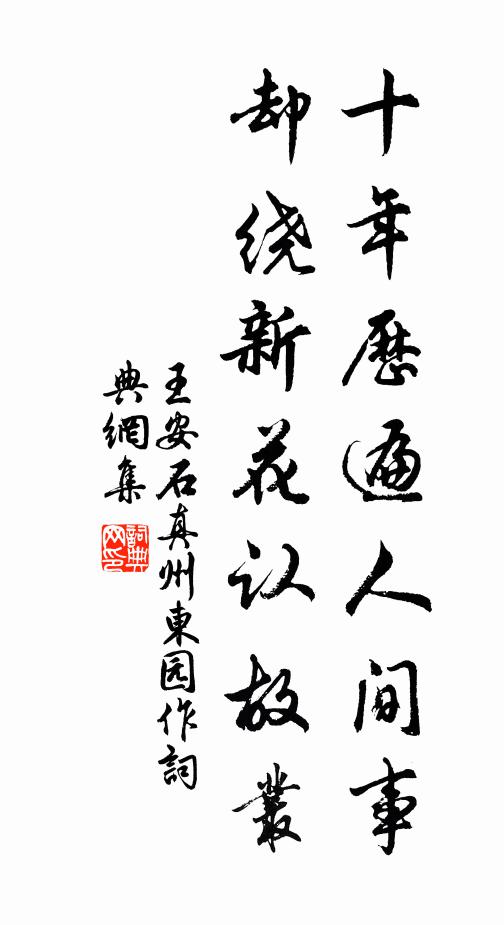 十年歷遍人间事
却绕新花认故叢
王安石真州東园作詞
典網集
詞典
网印